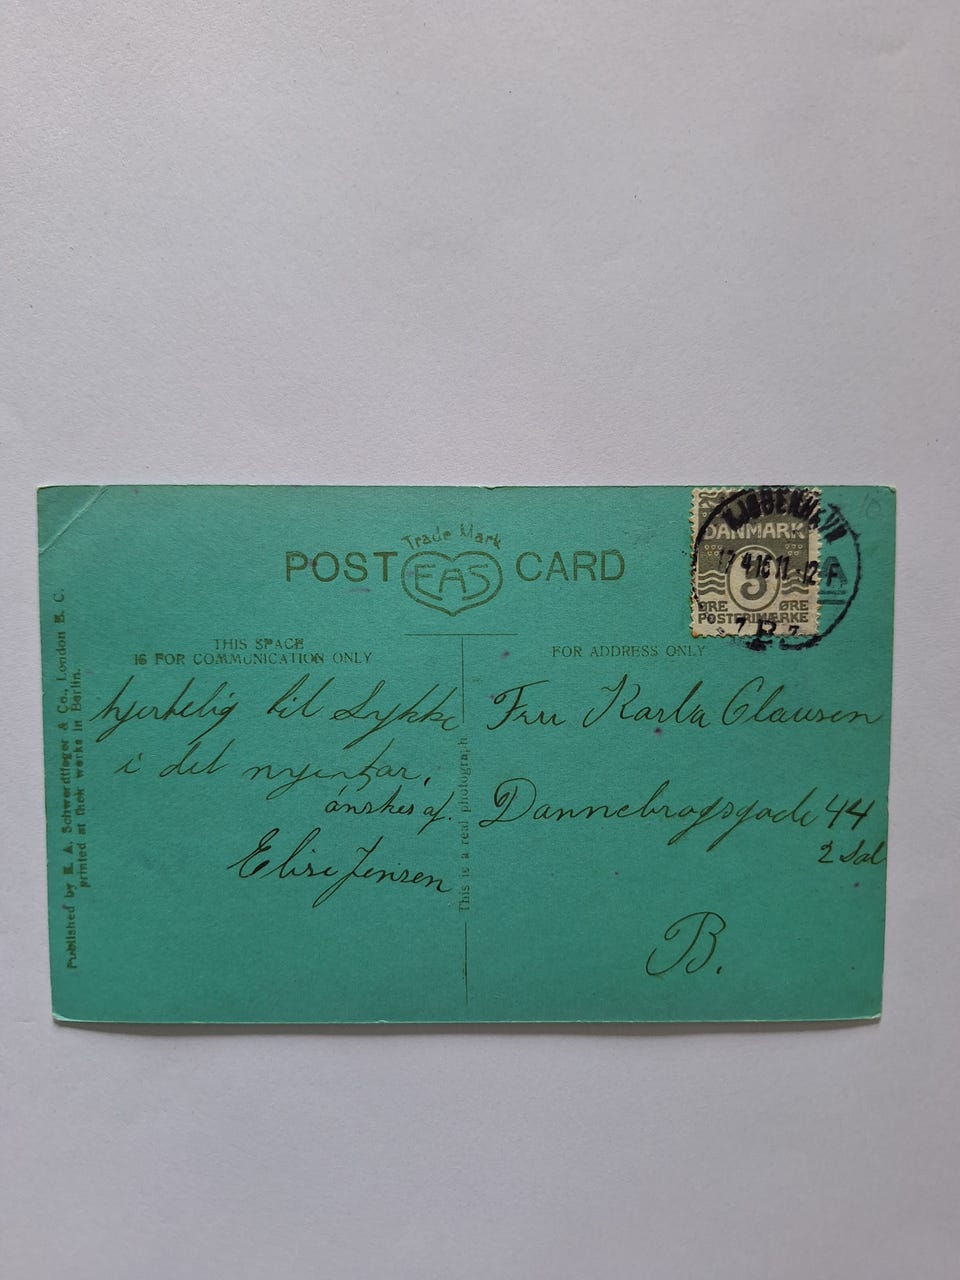 Trade Mark
POST EAS CARD
THIS SPACE
IS FOR COMMUNICATION ONLY
hjertelig til Lykke
i det
ønskes af.
Elise Jensen
FOR ADDRESS ONLY
Fru Karla Clausen
Dannebrogsgade 44
2 Sal
B.
KJØBENHAVN
DANMARK
17 4 16 11-12 F
3
ØRE ØRE
POSTFRIMÆRKE
7 B 7
This is a real photograph
Published by E. A. Schwerdtfeger & Co., London E. C.
printed at their works in Berlin.